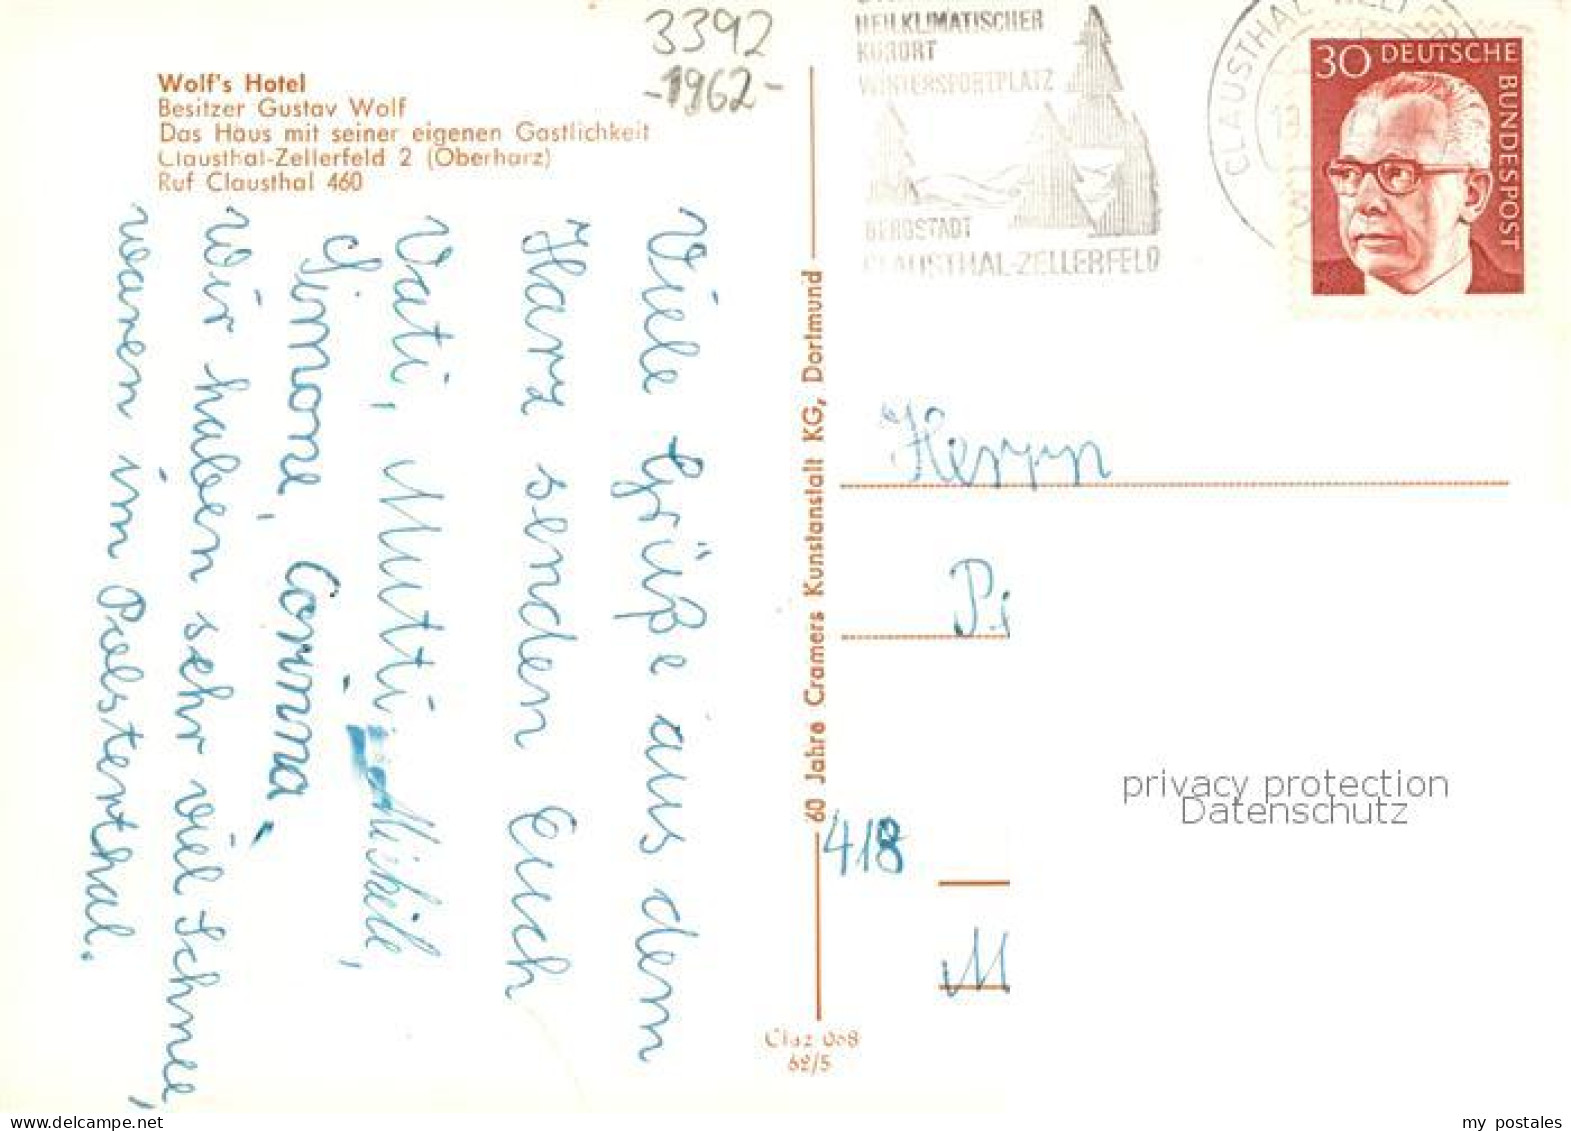 3392
-1962-
Wolf's Hotel
Besitzer Gustav Wolf
Das Haus mit seiner eigenen Gastlichkeit
Clausthal-Zellerfeld 2 (Oberharz)
Ruf Clausthal 460
Viele Grüße aus dem
Harz senden Euch
Vati, Mutti,
Simone, Corinna
wir haben sehr viel Schnee,
waren im Polstertal.
60 Jahre Cramers Kunstanstalt KG, Dortmund
HEILKLIMATISCHER
KURORT
WINTERSPORTPLATZ
BERGSTADT
CLAUSTHAL-ZELLERFELD
CLAUSTHAL-ZELLERFELD
30 DEUTSCHE
BUNDESPOST
Herrn
P
418
M
Claz 068
62/5
privacy protection
Datenschutz
my_postales